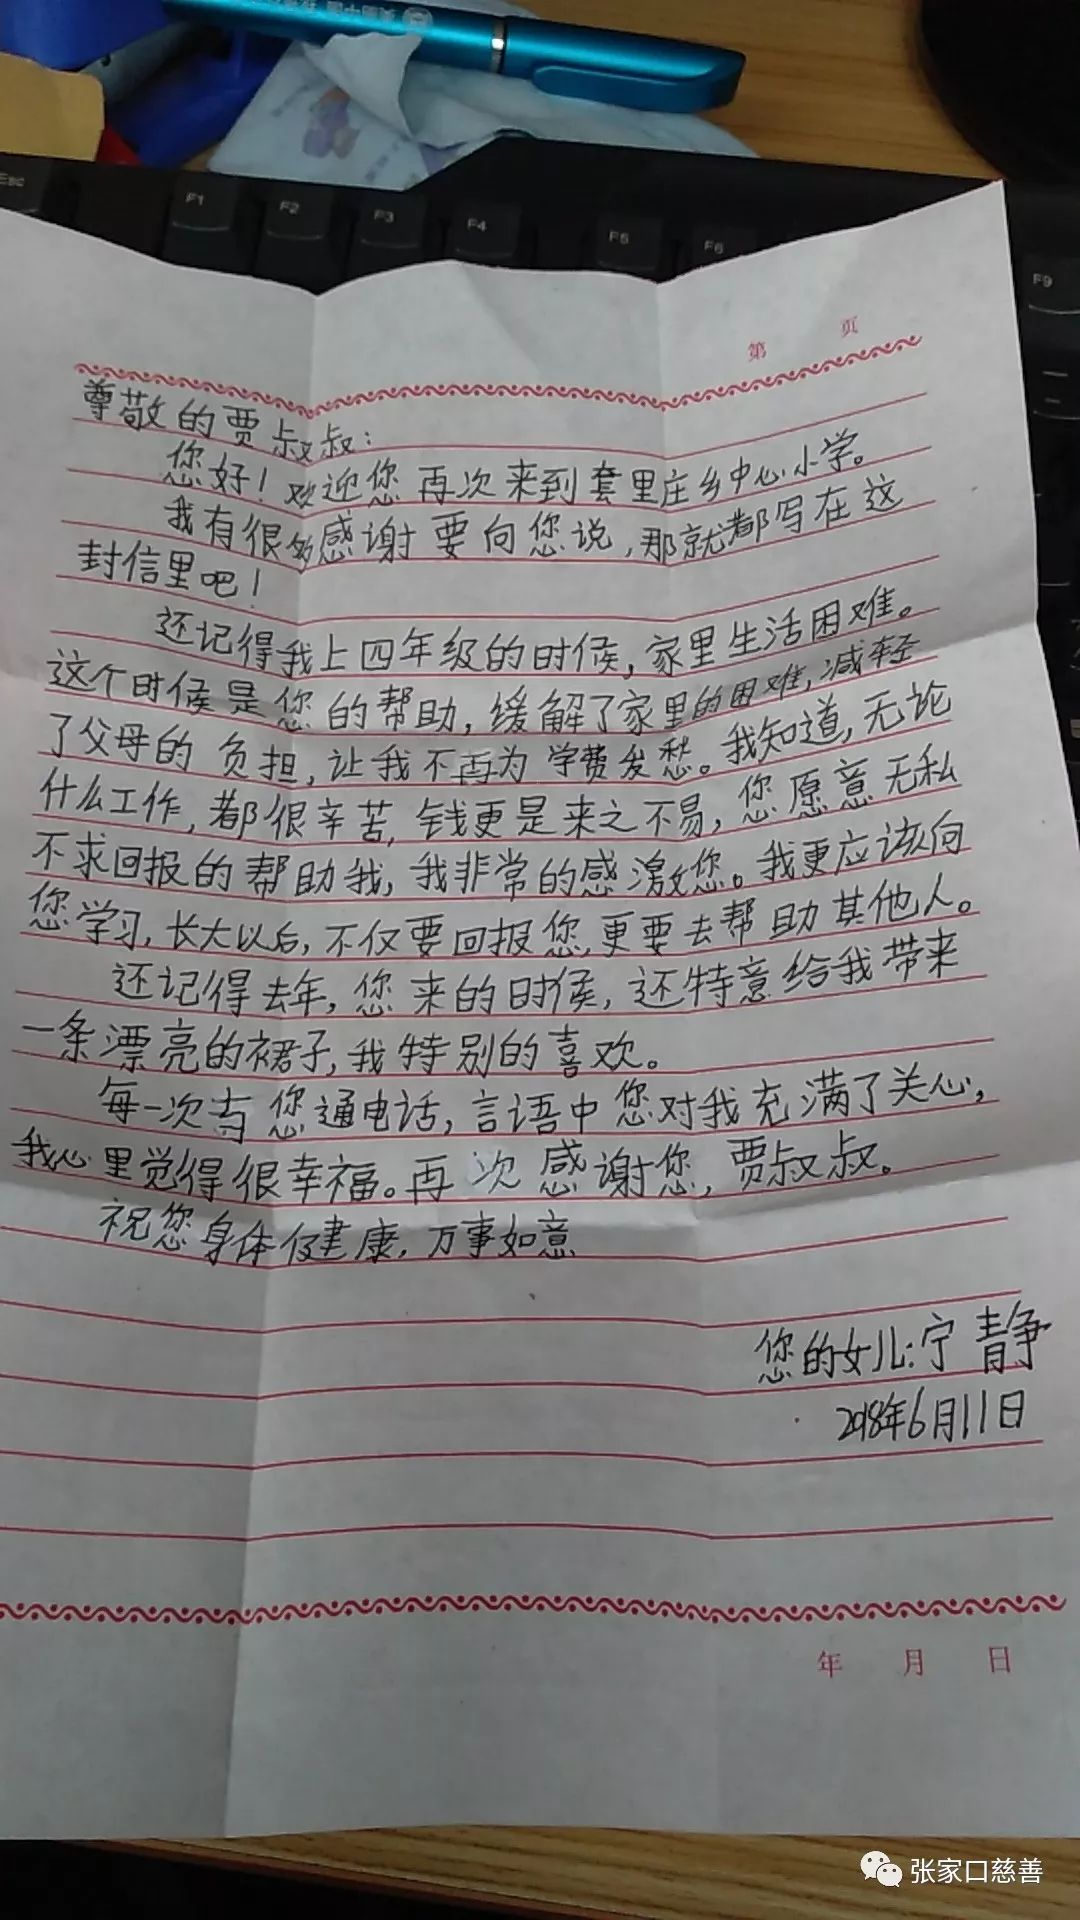 Esc
F1
F2
F3
F4
F5
F6
F9
第 页
尊敬的贾叔叔：
您好！欢迎您再次来到套里庄乡中心小学。
我有很多感谢要向您说，那就都写在这
封信里吧！
还记得我上四年级的时候，家里生活困难。
这个时候是您的帮助，缓解了家里的困难，减轻
了父母的负担，让我不再为学费发愁。我知道，无论
什么工作，都很辛苦，钱更是来之不易，您愿意无私
不求回报的帮助我，我非常的感激您。我更应该向
您学习，长大以后，不仅要回报您，更要去帮助其他人。
还记得去年，您来的时候，还特意给我带来
一条漂亮的裙子，我特别的喜欢。
每一次与您通电话，言语中您对我充满了关心，
我心里觉得很幸福。再次感谢您，贾叔叔。
祝您身体健康，万事如意
您的女儿：宁静
2018年6月11日
年 月 日
张家口慈善